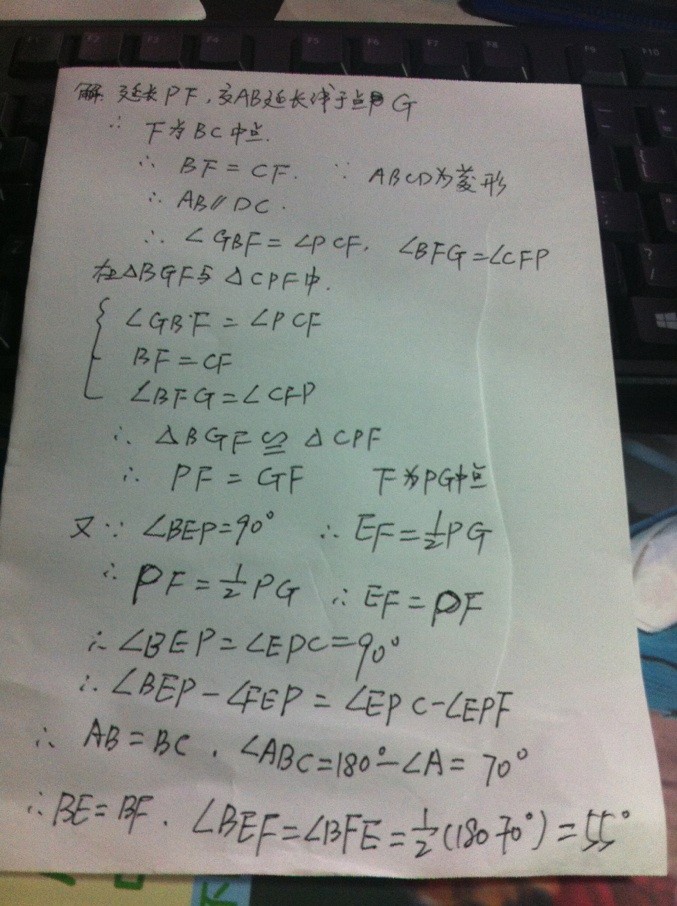 解 延长PF,交AB延长线于点G
∴ F为BC中点.
∴ BF=CF. ∵ ABCD为菱形
∴ AB∥DC.
∴ ∠GBF=∠PCF, ∠BFG=∠CFP
在△BGF与△CPF中.
∠GBF=∠PCF
BF=CF
∠BFG=∠CFP
∴ △BGF≌△CPF
∴ PF=GF F为PG中点
又∵ ∠BEP=90° ∴ EF=½PG
∴ PF=½PG ∴ EF=PF
∴ ∠BEP=∠EPC=90°
∴ ∠BEP-∠FEP=∠EPC-∠EPF
∴ AB=BC, ∠ABC=180°-∠A=70°
∴ BE=BF. ∠BEF=∠BFE=½(180 70°)=55°